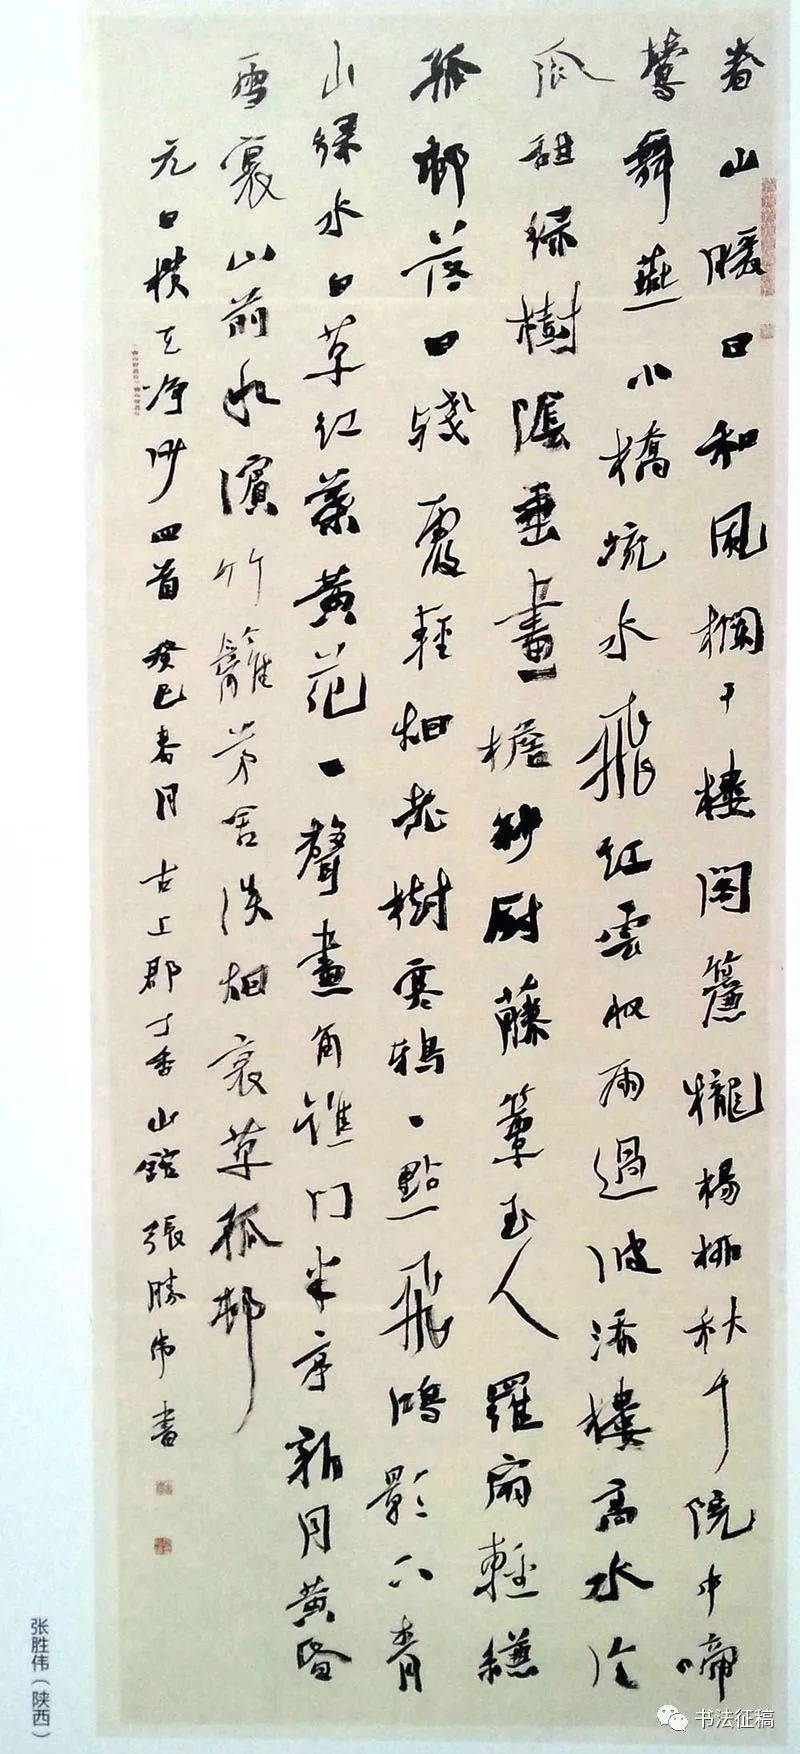 春山暖日和風欄干樓閣簾櫳楊柳秋千院中啼
鶯舞燕小橋流水飛紅雲收雨過波添樓高水冷
瓜甜綠樹陰垂畫檐紗厨藤簟玉人羅扇輕縑
孤邨落日殘霞輕烟老樹寒鴉一點飛鴻影下青
山綠水白草紅葉黃花一聲畫角譙门半亭新月黃昏
雪裏山前水濱竹籬茅舍淡烟衰草孤邨
元白樸天净沙四首 癸巳春月古上郡丁香山館張勝伟書
张胜伟（陕西）
书法征稿